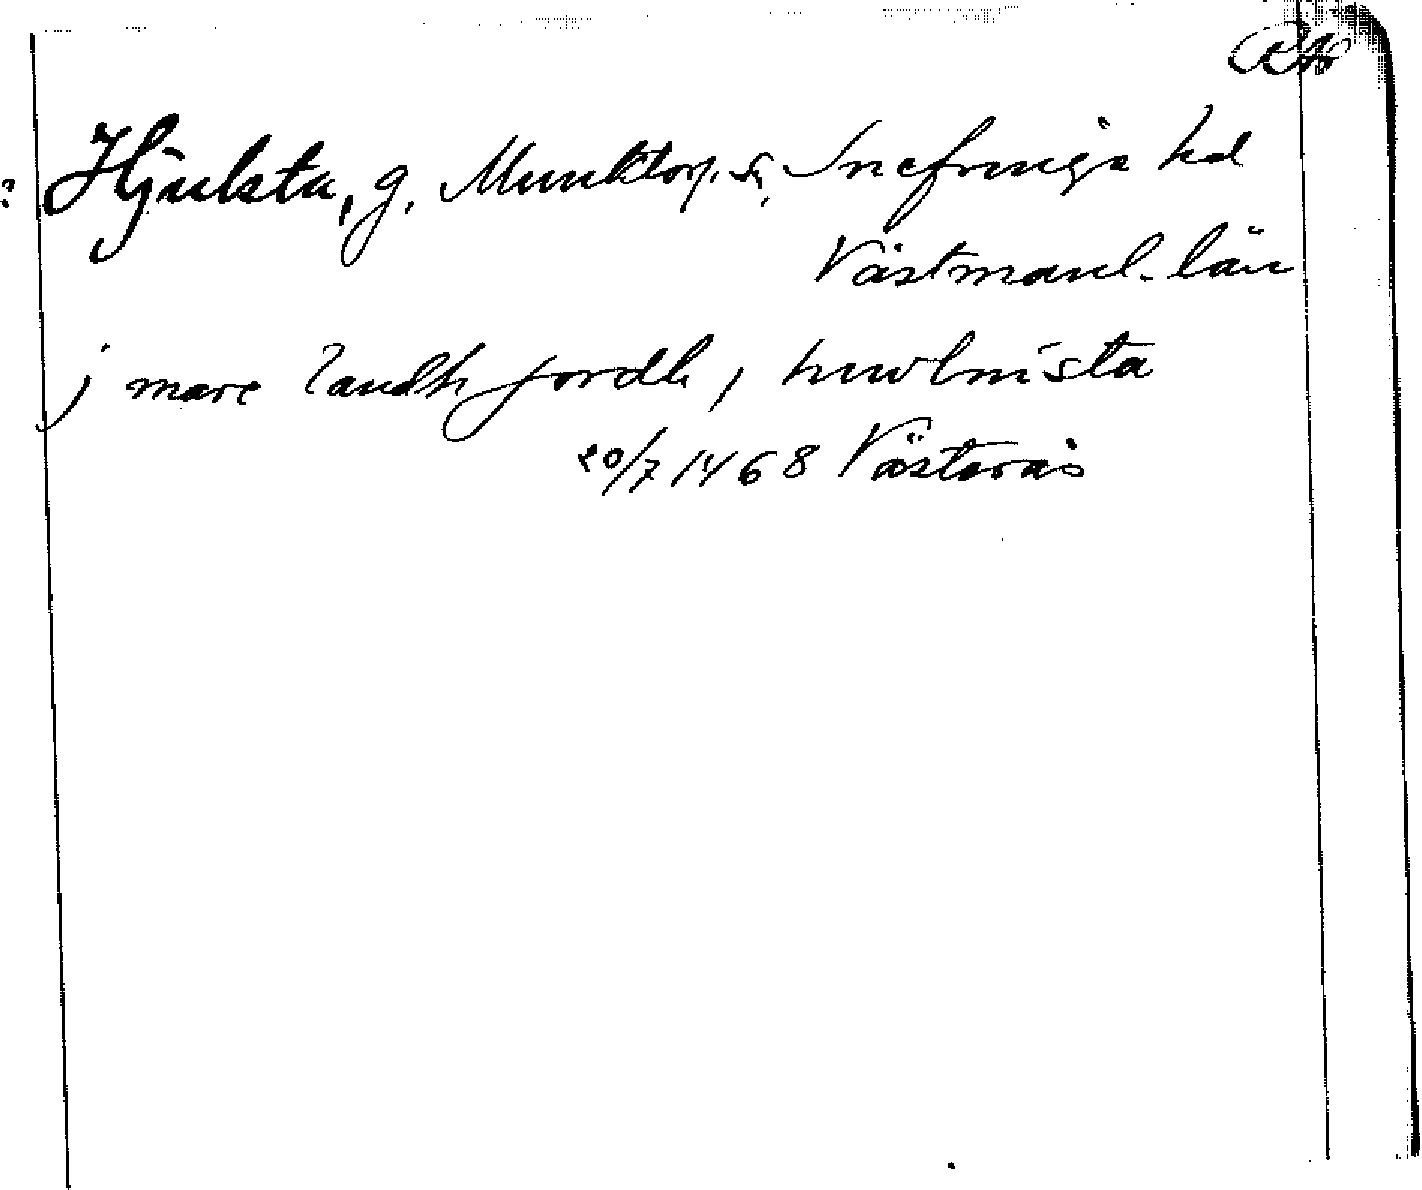 RA
? Hjulsta, g. Munktorp s., Snefringe hd
Västmanl. län
j mare landh jordh,
20/7 1468 Västerås